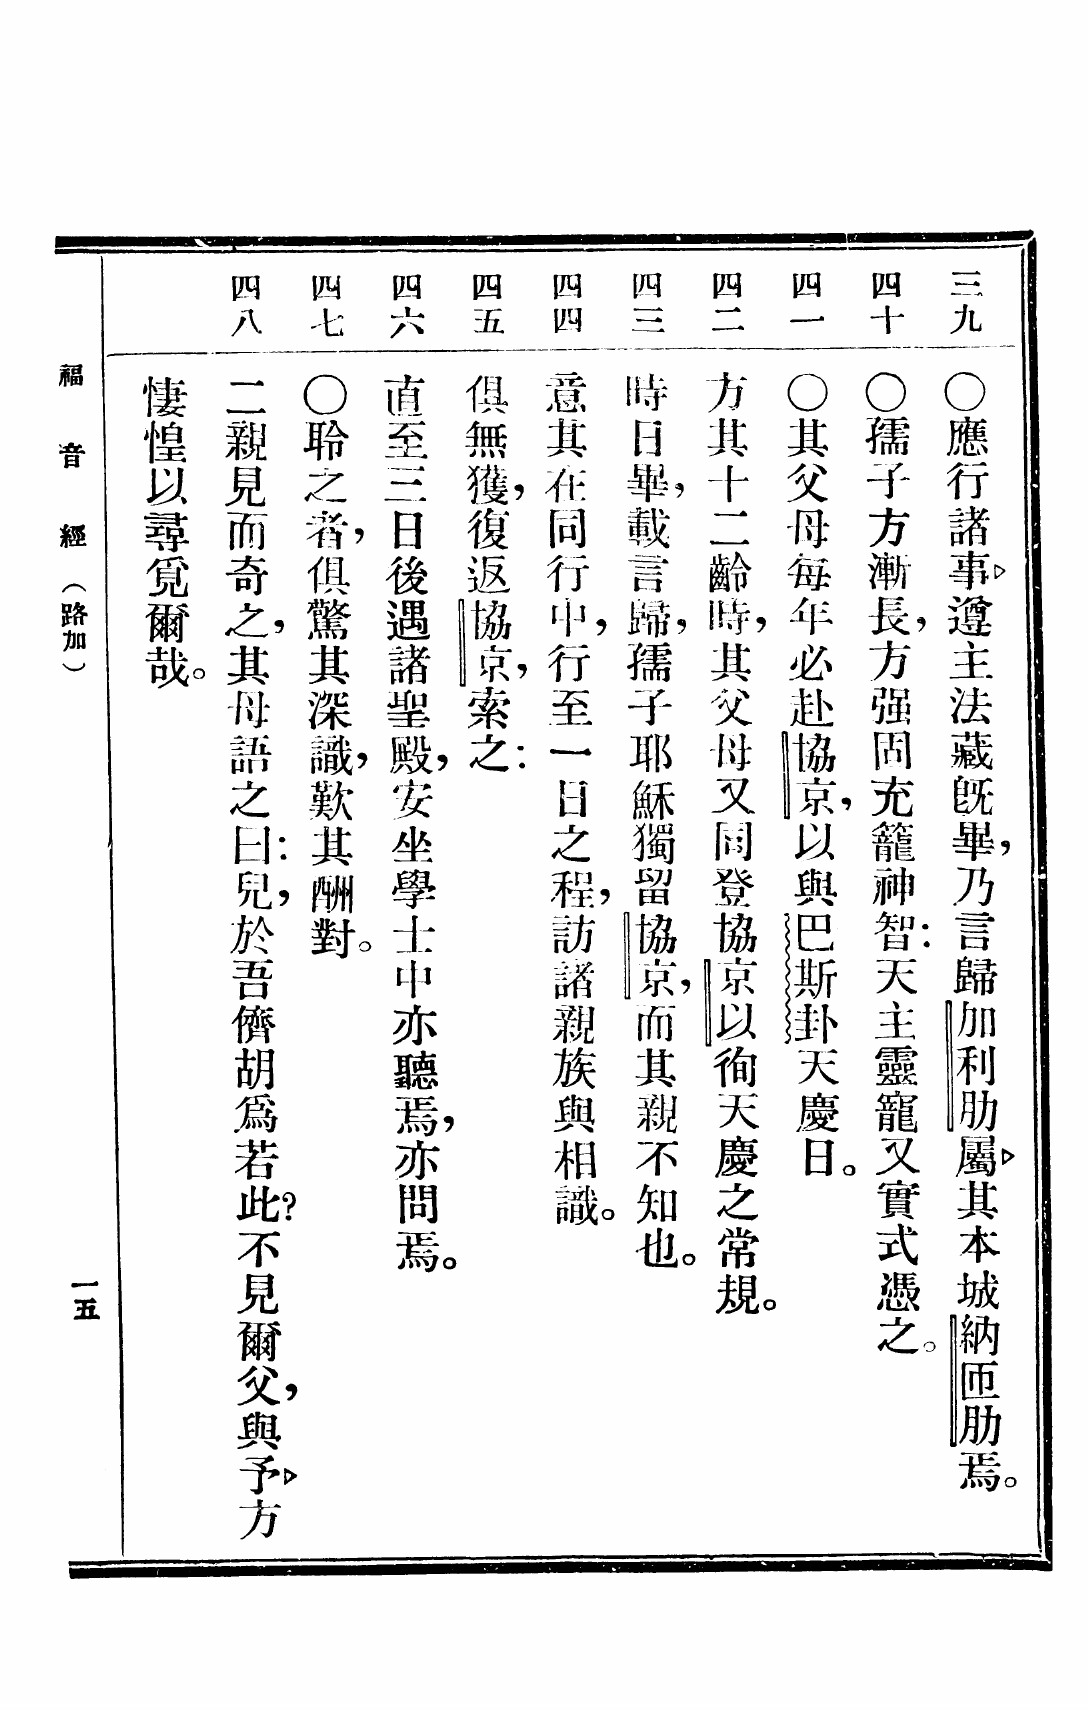 三九 ○應行諸事▷遵主法藏旣畢，乃言歸加利肋屬▷其本城納匝肋焉。
四十 ○孺子方漸長，方强固充籠神智：天主靈寵又實式憑之。
四一 ○其父母每年必赴協京，以與巴斯卦天慶日。
四二 方其十二齡時，其父母又同登協京以徇天慶之常規。
四三 時日畢，載言歸，孺子耶穌獨留協京，而其親不知也。
四四 意其在同行中，行至一日之程，訪諸親族與相識。
四五 俱無獲，復返協京，索之：
四六 直至三日後遇諸聖殿，安坐學士中亦聽焉，亦問焉。
四七 ○聆之者，俱驚其深識，歎其酬對。
四八 二親見而奇之，其母語之曰：兒，於吾儕胡爲若此？不見爾父，與予▷方
悽惶以尋覓爾哉。
福音經（路加）
一五